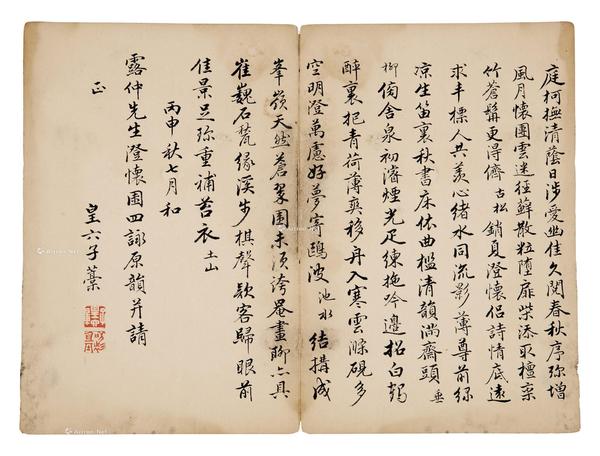 庭柯撫清蔭日涉愛幽佳久閱春秋序彌增
風月懷園雲迷徑蘚散粒墮扉柴添取檀欒
竹蒼髯更得儕古松銷夏澄懷侶詩情底遠
求丰標人共羨心緒水同流影薄尊前綠
涼生笛裏秋書床依曲檻清韻滿齋頭垂
柳傍舍泉初濬煙光足練拖吟邊招白鷗
醉裏把青荷薄爽移舟入寒雲滌硯多
空明澄萬慮好夢寄鷗波池水結構成
峯嶺天然蒼翠圍未須誇罨畫聊亦具
崔巍石氎緣溪步棋聲欵客歸眼前
佳景足弥重補苔衣土山
丙申秋七月和
露仲先生澄懷園四詠原韻并請
正
皇六子藁